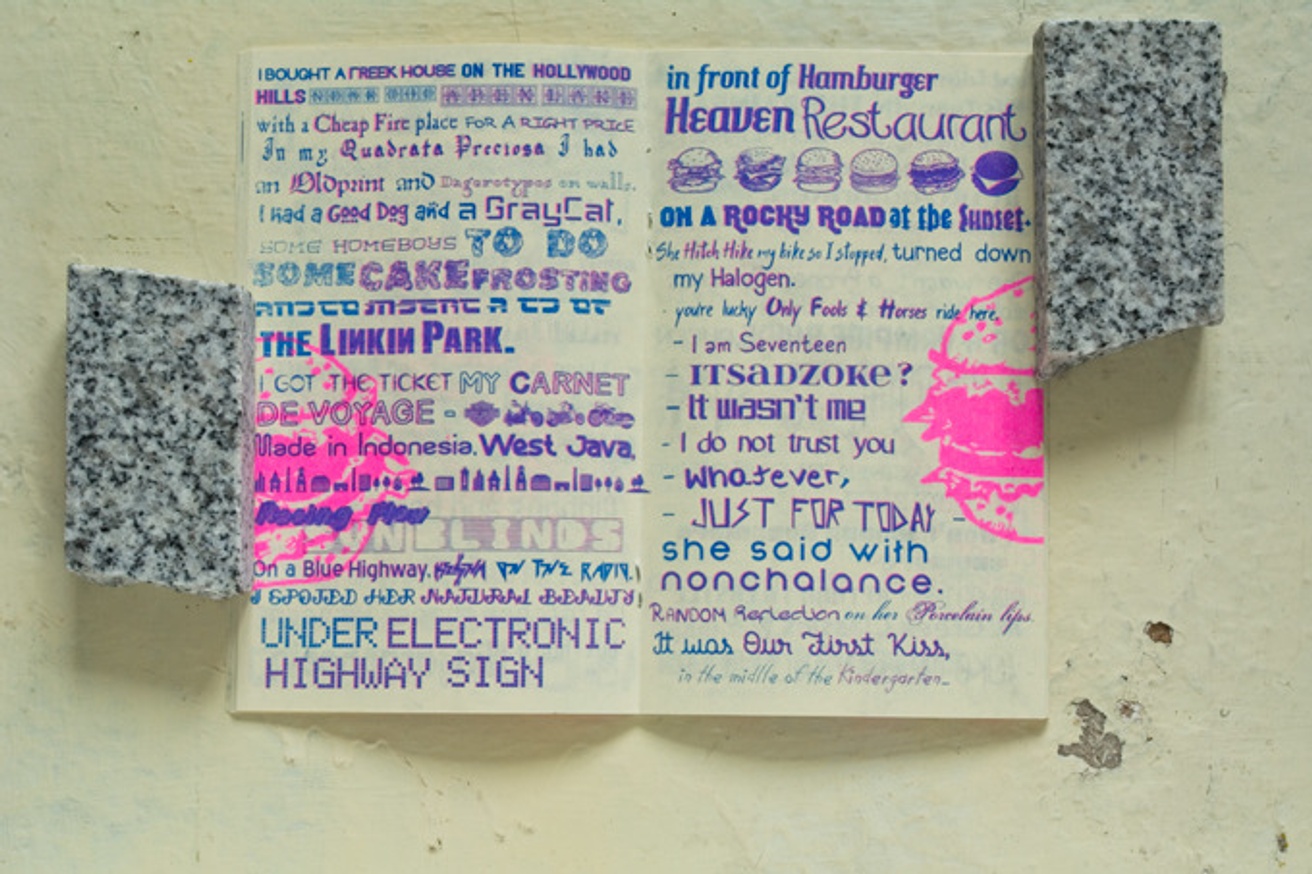 I BOUGHT A FREEK HOUSE ON THE HOLLYWOOD
HILLS NEAR THE
with a Cheap Fire place FOR A RIGHT PRICE
In my Quadrata Preciosa I had
an Oldprint and Dagerotypos on walls.
I had a Good Dog and a GrayCat,
SOME HOMEBOYS TO DO
SOME CAKE FROSTING
AND TO INSERT A CD OF
THE LINKIN PARK.
I GOT THE TICKET MY CARNET
DE VOYAGE -
Made in Indonesia. West Java,
Racing Flow
SUNBLINDS
On a Blue Highway. KESHA ON THE RADIO.
I SPOTED HER NATURAL BEAUTY
UNDER ELECTRONIC
HIGHWAY SIGN
in front of Hamburger
Heaven Restaurant
ON A ROCKY ROAD at the Sunset.
She Hitch Hike my bike so I stopped, turned down
my Halogen.
you're lucky Only Fools & Horses ride here.
- I am Seventeen
- ITSADZOKE?
- It wasn't me
- I do not trust you
- Whatever,
- JUST FOR TODAY -
she said with
nonchalance.
RANDOM Reflection on her Porcelain lips.
It was Our First Kiss,
in the midlle of the Kindergarten_